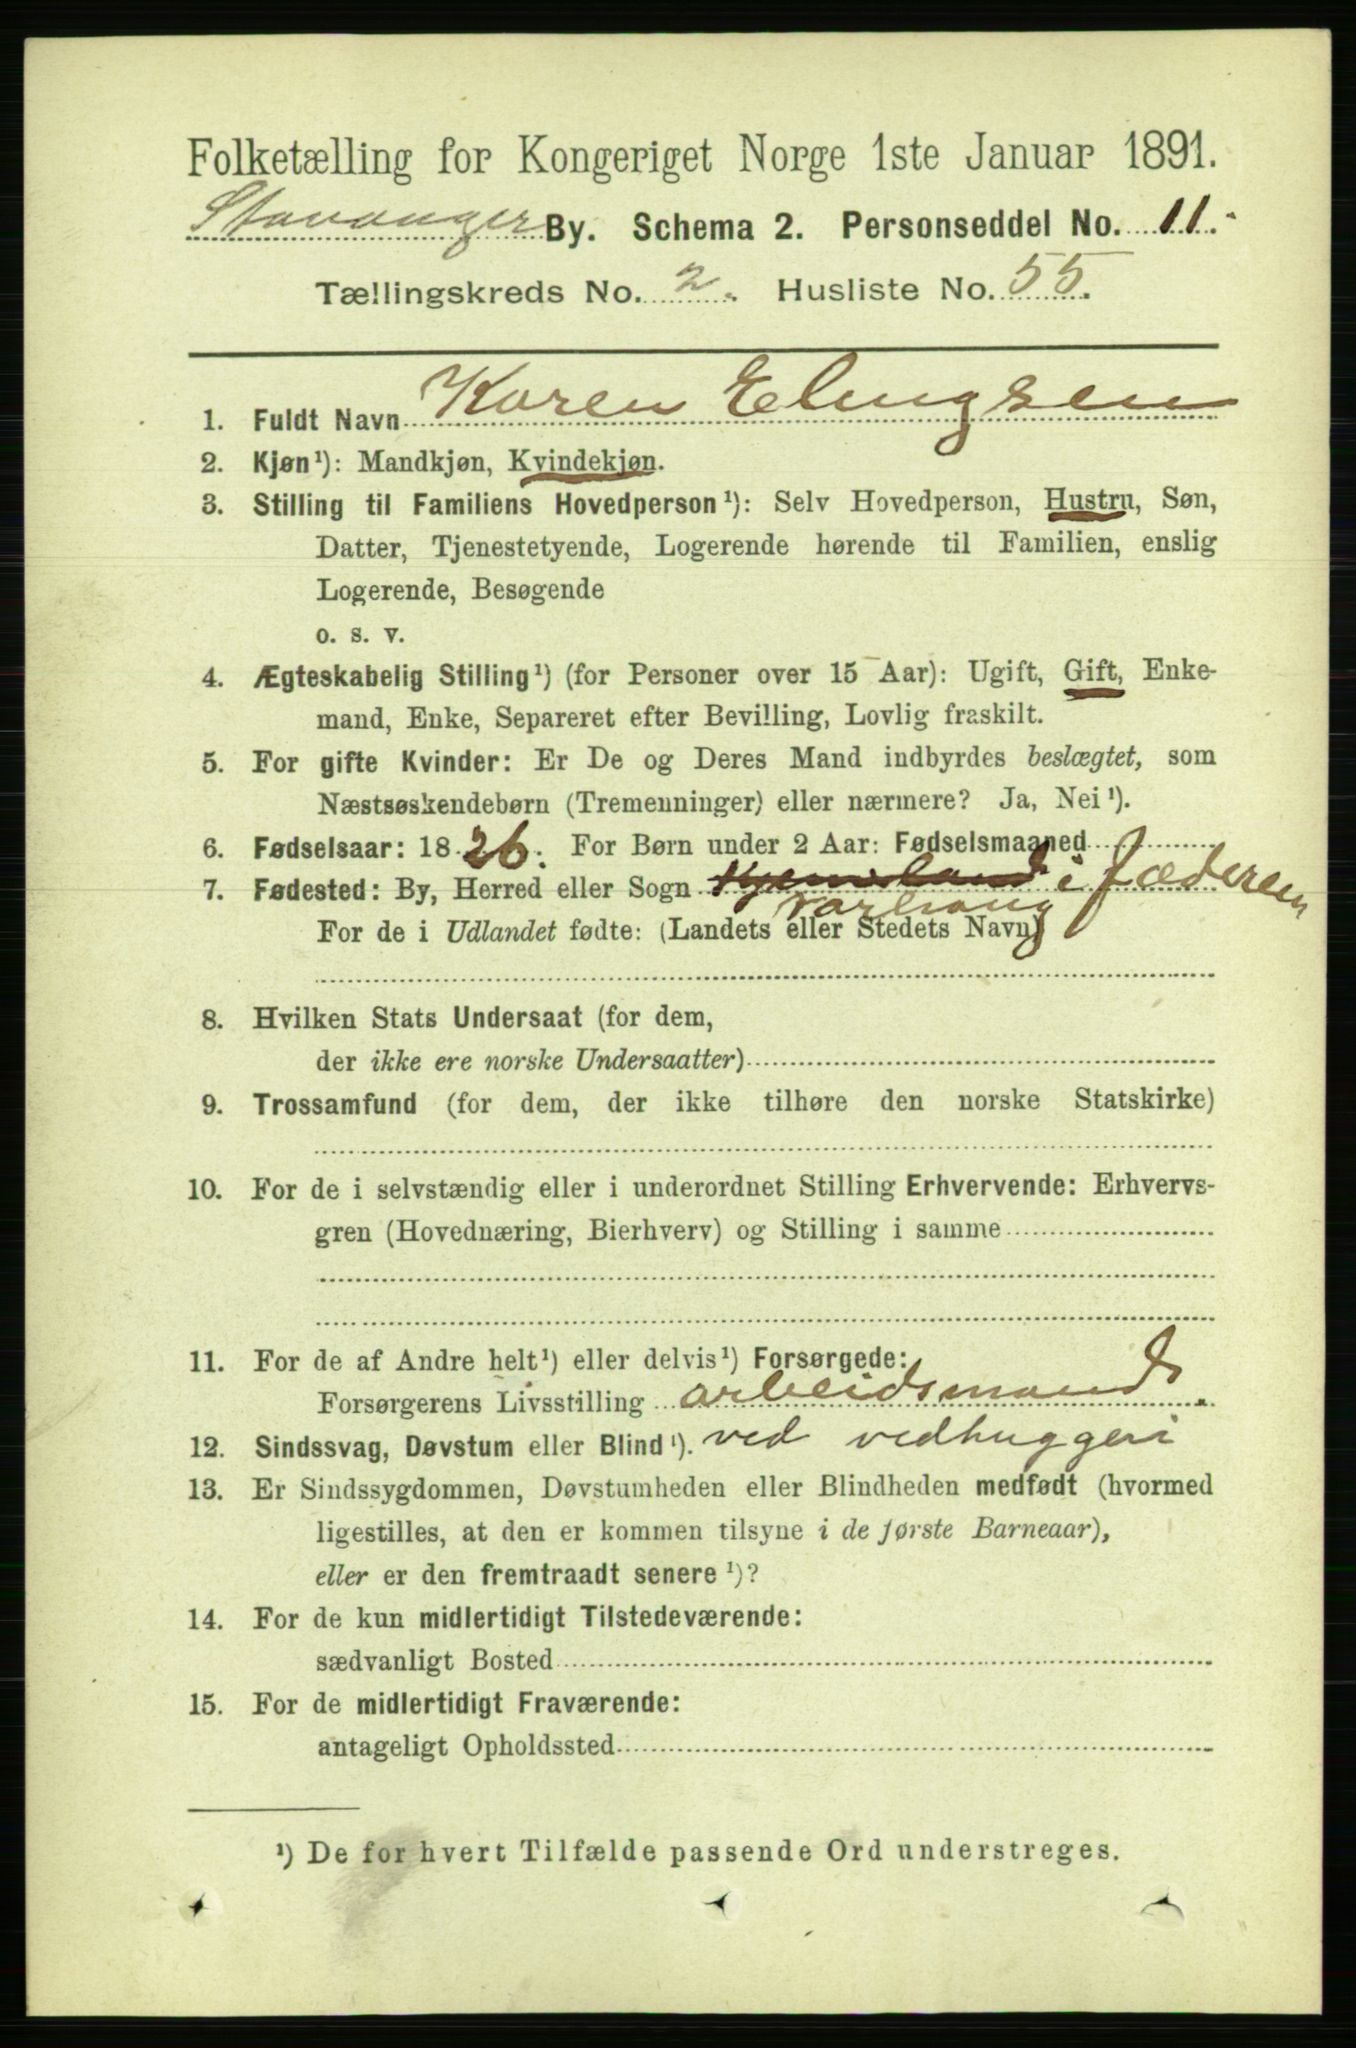 Folketælling for Kongeriget Norge 1ste Januar 1891.
Stavanger By. Schema 2. Personseddel No. 11.
Tællingskreds No. 2. Husliste No. 55.
1. Fuldt Navn Karen Elingsen
2. Kjøn¹): Mandkjøn, Kvindekjøn.
3. Stilling til Familiens Hovedperson¹): Selv Hovedperson, Hustru, Søn,
Datter, Tjenestetyende, Logerende hørende til Familien, enslig
Logerende, Besøgende
o. s. v.
4. Ægteskabelig Stilling¹) (for Personer over 15 Aar): Ugift, Gift, Enke-
mand, Enke, Separeret efter Bevilling, Lovlig fraskilt.
5. For gifte Kvinder: Er De og Deres Mand indbyrdes beslægtet, som
Næstsøskendebørn (Tremenninger) eller nærmere? Ja, Nei¹).
6. Fødselsaar: 1826. For Børn under 2 Aar: Fødselsmaaned
7. Fødested: By, Herred eller Sogn i Jæderen
Varhaug
For de i Udlandet fødte: (Landets eller Stedets Navn)
8. Hvilken Stats Undersaat (for dem,
der ikke ere norske Undersaatter)
9. Trossamfund (for dem, der ikke tilhøre den norske Statskirke)
10. For de i selvstændig eller i underordnet Stilling Erhvervende: Erhvervs-
gren (Hovednæring, Bierhverv) og Stilling i samme
11. For de af Andre helt¹) eller delvis¹) Forsørgede:
Forsørgerens Livsstilling arbeidsmand
12. Sindssvag, Døvstum eller Blind¹). ved vedhuggeri
13. Er Sindssygdommen, Døvstumheden eller Blindheden medfødt (hvormed
ligestilles, at den er kommen tilsyne i de første Barneaar),
eller er den fremtraadt senere¹)?
14. For de kun midlertidigt Tilstedeværende:
sædvanligt Bosted
15. For de midlertidigt Fraværende:
antageligt Opholdssted
¹) De for hvert Tilfælde passende Ord understreges.